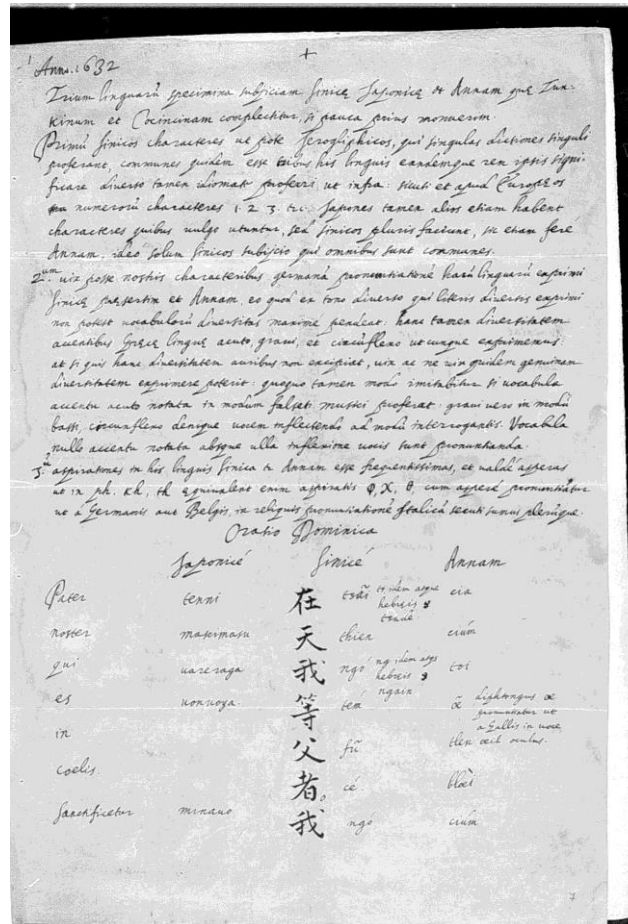 Anno. 1632
Trium linguarũ specimina subjiciam Sinicę Japonicę et Annam quę Tun-
kinum et Cocincinam complectitur, si pauca prius monuerim.
Primũ sinicos characteres ut pote Jerogliphicos, qui singulas dictiones singuli
proferant, communes quidem esse tribus his linguis eandemque rem ipsis signi-
ficare diverso tamen idiomate proferri ut infra. sicuti et apud Europęos
numerorũ characteres 1. 2. 3. tc. Japones tamen alios etiam habent
characteres quibus vulgo utuntur, sed sinicos pluris faciunt, sic etiam ferè
Annam. ideo solum sinicos subijcio qui omnibus sunt communes.
2.um vix posse nostris characteribus germanã pronuntiationẽ harũ linguarũ exprimi
sinicę pręsertim et Annam, eo quod ex tono diverso qui literis diversis exprimi
non potest vocabulorũ diversitas maximè pendeat: hanc tamen diversitatem
accentibus Gręcę linguę acuto, gravi, et circũflexo utcunque exprimemus:
at si quis hanc diversitatem auribus non excipiat, vix ac ne vix quidem genuinam
diversitatem exprimere poterit: quoquo tamen modo imitabitur si vocabula
accentu acuto notata in modum falseti musici proferat: gravi vero in modũ
bassi, circumflexo denique vocem inflectendo ad modũ interrogantis. Vocabula
nullo accentu notata absque ulla inflexione vocis sunt pronuntianda.
3.um aspirationes in his linguis sinica et Annam esse frequentissimas, et valdè asperas
ut in ph, kh, th ęquivalent enim aspiratis φ, χ, θ, cum asperè pronuntiãtur
ut a Germanis aut Belgis, in reliquis pronuntiationẽ Italicã secuti sumus plerũque.
Oratio Dominica
Japonicè Sinicè Annam
Pater tenni 在 tsãi to idem atque hebręis cia
noster masimasu 天 thien ciúm
qui vareraga 我 ngó ng idem atqs hebręis ngain toi
es vonvoya. 等 tem œ̃ diphtongus œ pronuntiatur ut a Gallis in voce œil oculus.
in 父 fũ tlen
coelis. 者 cé blœ̀i
Sanctificetur minavo 我 ngo ciúm
7